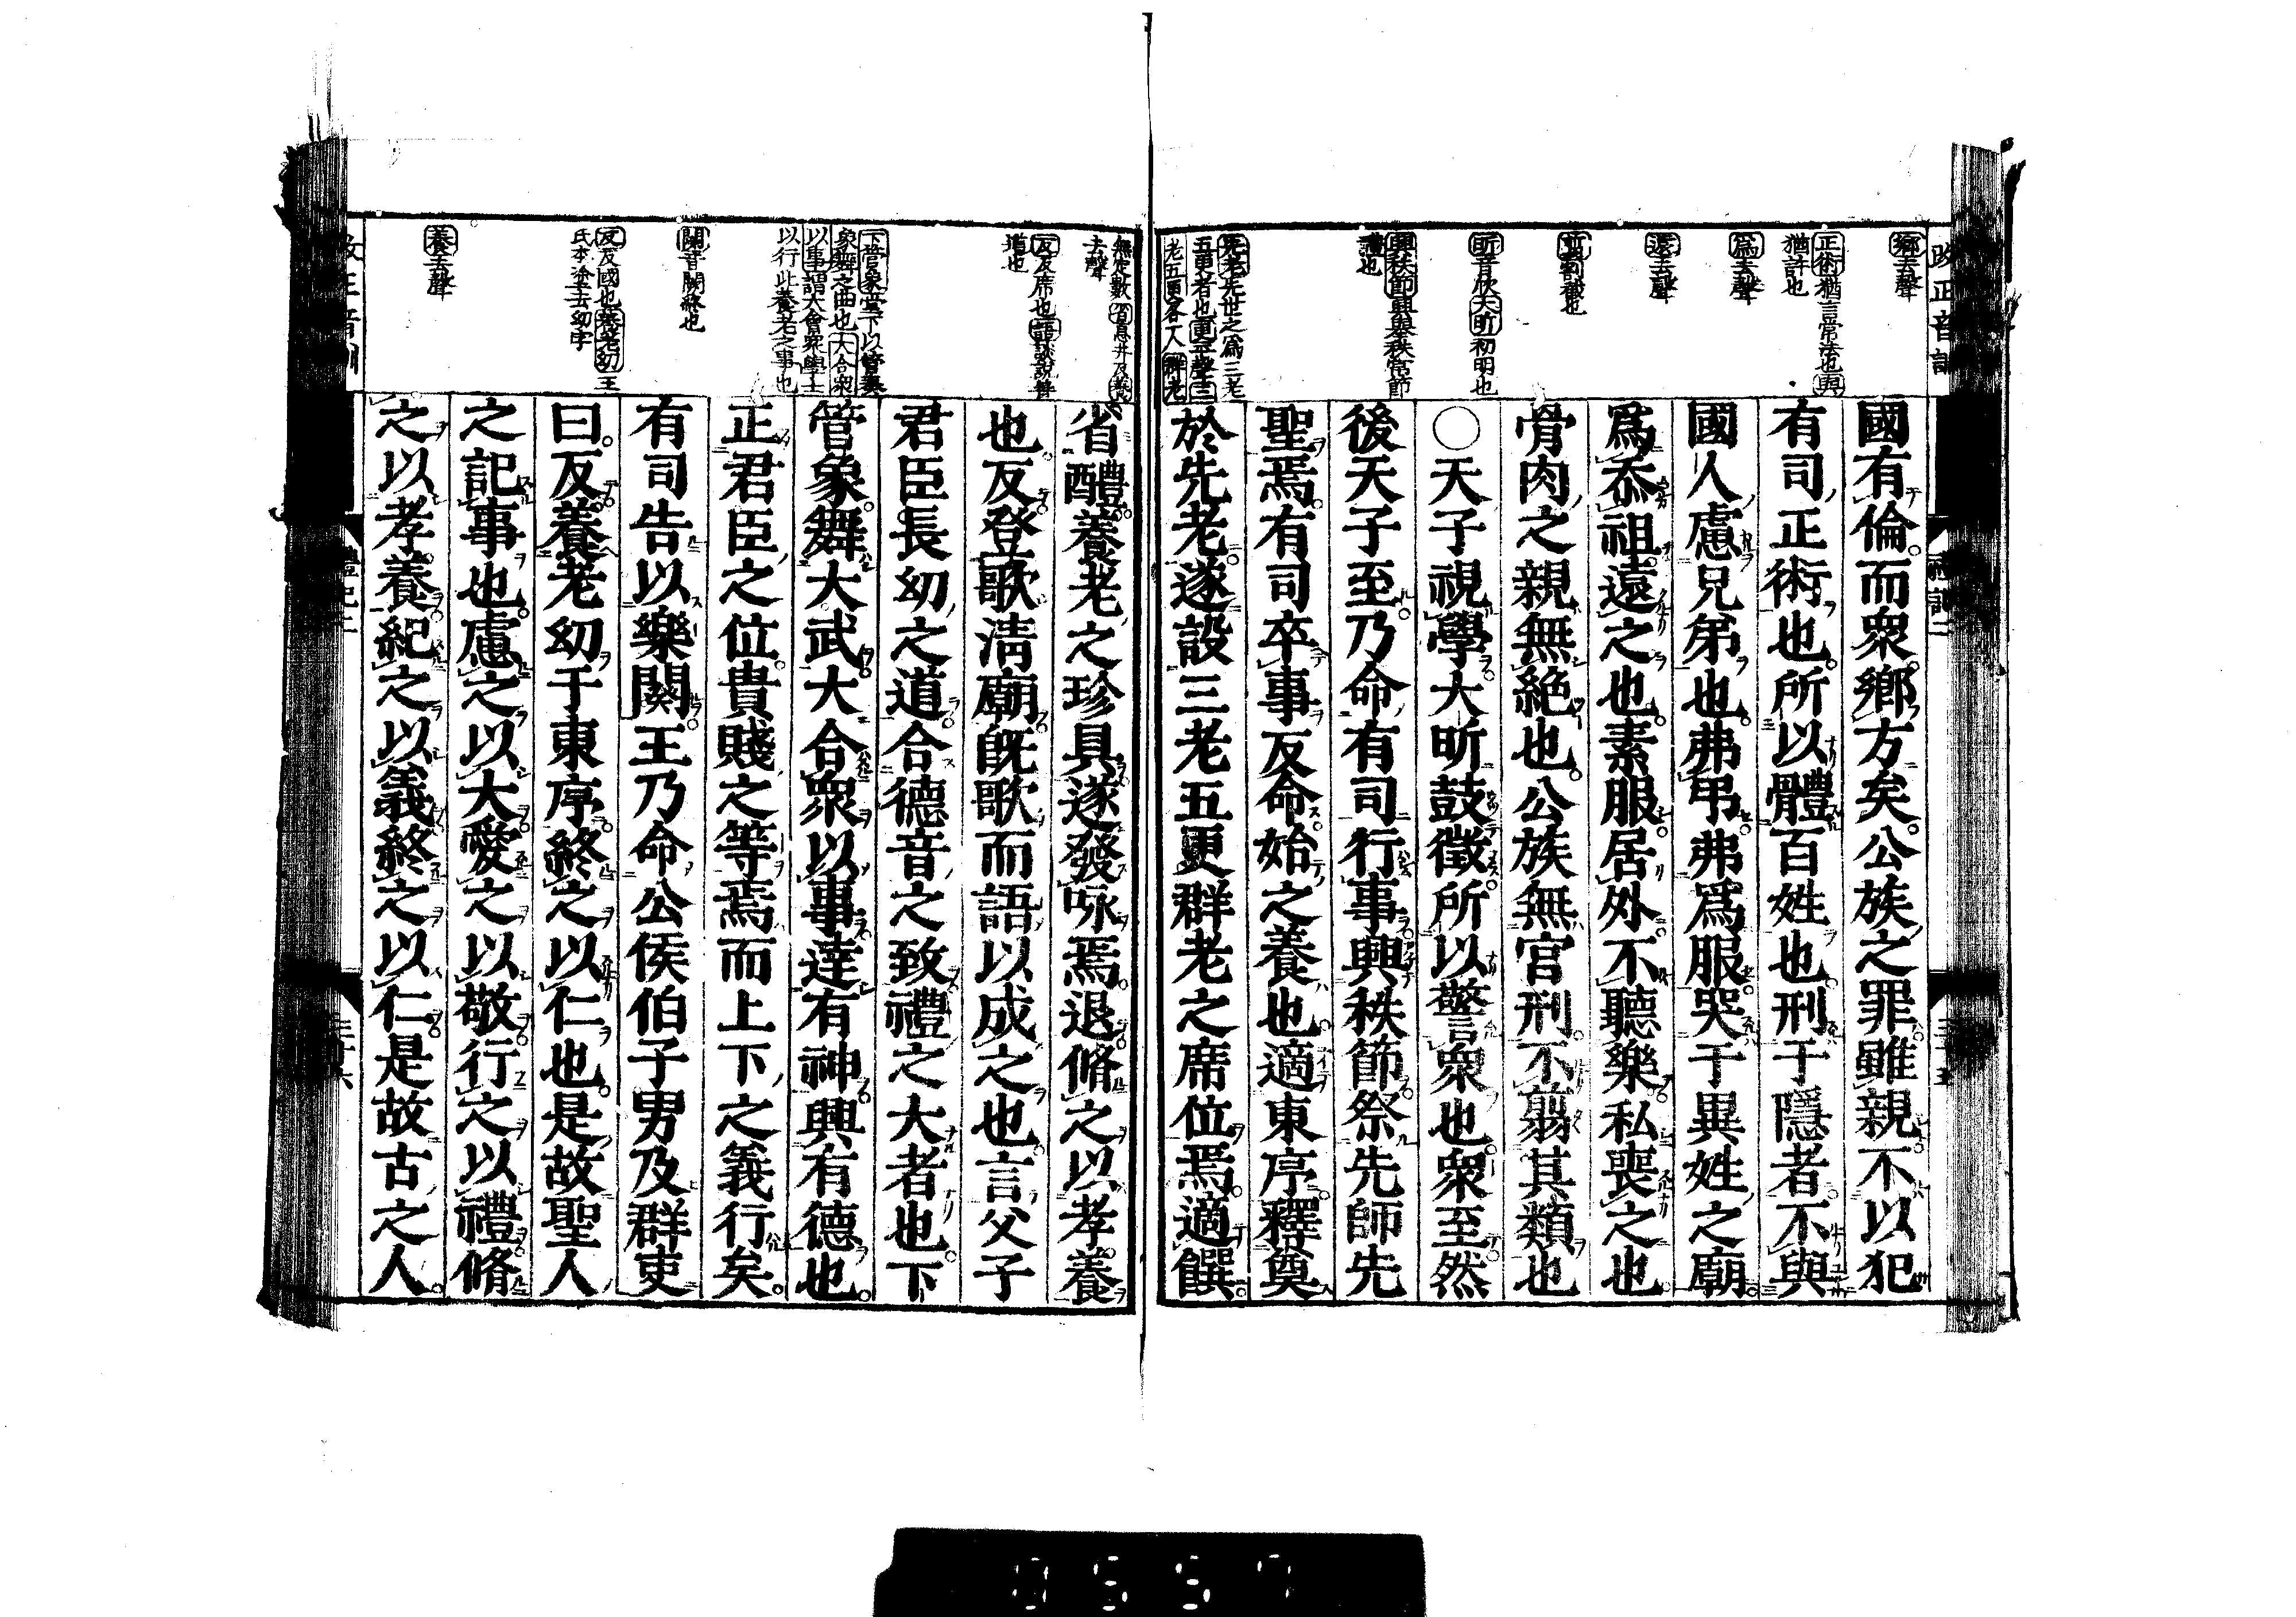 鄉去聲
正術猶言常法也與
猶許也
爲去聲
遠去聲
翦割截也
昕音欣大昕初明也
興秩節興舉秩常節
禮也
先老先世之爲三老
五更者也更平聲三
老五更各一人群老
國有倫而衆鄉方矣公族之罪雖親不以犯
有司正術也所以體百姓也刑于隱者不與
國人慮兄弟也弗弔弗爲服哭于異姓之廟
爲忝祖遠之也素服居外不聽樂私喪之也
骨肉之親無絕也公族無宮刑不翦其類也
○天子視學大昕鼓徵所以警衆也衆至然
後天子至乃命有司行事興秩節祭先師先
聖焉有司卒事反命始之養也適東序釋奠
於先老遂設三老五更群老之席位焉適饌
無定數省息井反養
去聲
反反席也語談說善
道也
下管象堂下以管奏
象舞之曲也大合衆
以事謂大會衆學士
以行此養老之事也
闋音闋終也
反反國也養老幼王
氏本塗去幼字
養去聲
省醴養老之珍具遂發咏焉退脩之以孝養
也反登歌淸廟旣歌而語以成之也言父子
君臣長幼之道合德音之致禮之大者也下
管象舞大武大合衆以事達有神興有德也
正君臣之位貴賤之等焉而上下之義行矣
有司告以樂闋王乃命公侯伯子男及群吏
曰反養老幼于東序終之以仁也是故聖人
之記事也慮之以大愛之以敬行之以禮脩
之以孝養紀之以義終之以仁是故古之人